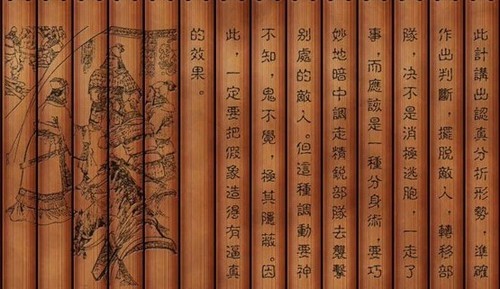 此計講出認真分折形勢，準確
作出判斷，擺脫敵人，轉移部
隊，決不是消極逃胞，一走了
事，而應該是一種分身術，要巧
妙地暗中調走精銳部隊去襲擊
別處的敵人。但這種調動要神
不知，鬼不覺，極其隱蔽。因
此，一定要把假象造得有逼真
的效果。